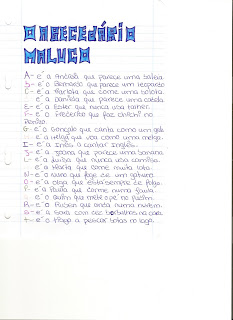 O ABECEDÁRIO
MALUCO
A- é a Andreia que parece uma
B- é o Bernardo que parece um leopardo
C- é a que come uma bolota.
D- é a Danida que parece uma cadela
E- é a Ester que nunca usa
F- é o Frederico que faz chichi no
penico.
G- é o Gonçalo que canta como um galo
H- é a Helga que voa como uma melga.
I- é a Inês a cantar Inglês.
J- é a Joana que parece uma banana.
L- é a que nunca usa camisa.
M- é a Maria que come muita
N- é o Nuno que foge de um gatuno.
O- é a Olga que está sempre de folga.
P- é a Paula que come numa
Q- é o Quim que mete o pé no pudim.
R- é o Ruben que anda numa nuvem.
S- é a Sara com dez borbulhas na cara.
T- é o Tiago a pescar botas no lago.